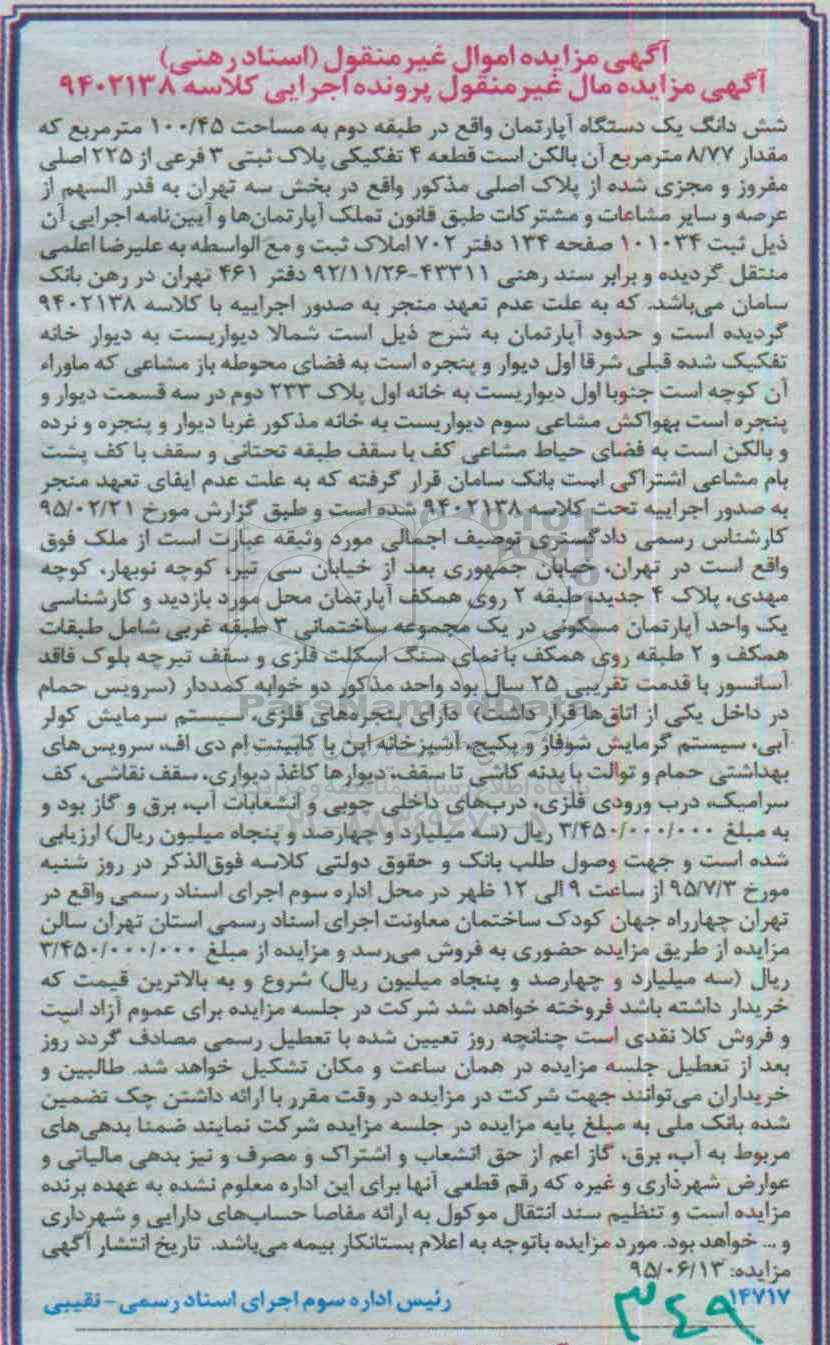 آگهی مزایده اموال غیرمنقول (اسناد رهنی)
آگهی مزایده مال غیرمنقول پرونده اجرایی کلاسه ۹۴۰۲۱۳۸
شش دانگ یک دستگاه آپارتمان واقع در طبقه دوم به مساحت ۱۰۰/۴۵ مترمربع که
مقدار ۸/۷۷ مترمربع آن بالکن است قطعه ۴ تفکیکی پلاک ثبتی ۳ فرعی از ۲۲۵ اصلی
مفروز و مجزی شده از پلاک اصلی مذکور واقع در بخش سه تهران به قدر السهم از
عرصه و سایر مشاعات و مشترکات طبق قانون تملک آپارتمان‌ها و آیین‌نامه اجرایی آن
ذیل ثبت ۱۰۱۰۳۴ صفحه ۱۳۴ دفتر ۷۰۲ املاک ثبت و مع الواسطه به علیرضا اعلمی
منتقل گردیده و برابر سند رهنی ۴۳۳۱۱-۹۲/۱۱/۲۶ دفتر ۴۶۱ تهران در رهن بانک
سامان می‌باشد. که به علت عدم تعهد منجر به صدور اجراییه با کلاسه ۹۴۰۲۱۳۸
گردیده است و حدود آپارتمان به شرح ذیل است شمالا دیواریست به دیوار خانه
تفکیک شده قبلی شرقا اول دیوار و پنجره است به فضای محوطه باز مشاعی که ماوراء
آن کوچه است جنوبا اول دیواریست به خانه اول پلاک ۲۳۳ دوم در سه قسمت دیوار و
پنجره است بهواکش مشاعی سوم دیواریست به خانه مذکور غربا دیوار و پنجره و نرده
و بالکن است به فضای حیاط مشاعی کف با سقف طبقه تحتانی و سقف با کف پشت
بام مشاعی اشتراکی است بانک سامان قرار گرفته که به علت عدم ایفای تعهد منجر
به صدور اجراییه تحت کلاسه ۹۴۰۲۱۳۸ شده است و طبق گزارش مورخ ۹۵/۰۲/۲۱
کارشناس رسمی دادگستری توصیف اجمالی مورد وثیقه عبارت است از ملک فوق
واقع است در تهران، خیابان جمهوری بعد از خیابان سی تیر، کوچه نوبهار، کوچه
مهدی، پلاک ۴ جدید، طبقه ۲ روی همکف آپارتمان محل مورد بازدید و کارشناسی
یک واحد آپارتمان مسکونی در یک مجموعه ساختمانی ۳ طبقه غربی شامل طبقات
همکف و ۲ طبقه روی همکف با نمای سنگ اسکلت فلزی و سقف تیرچه بلوک فاقد
آسانسور با قدمت تقریبی ۲۵ سال بود واحد مذکور دو خوابه کمددار (سرویس حمام
در داخل یکی از اتاق‌ها قرار داشت) دارای پنجره‌های فلزی، سیستم سرمایش کولر
آبی، سیستم گرمایش شوفاژ و پکیج، آشپزخانه اپن با کابینت ام دی اف، سرویس‌های
بهداشتی حمام و توالت با بدنه کاشی تا سقف، دیوارها کاغذ دیواری، سقف نقاشی، کف
سرامیک، درب ورودی فلزی، درب‌های داخلی چوبی و انشعابات آب، برق و گاز بود و
به مبلغ ۳/۴۵۰/۰۰۰/۰۰۰ ریال (سه میلیارد و چهارصد و پنجاه میلیون ریال) ارزیابی
شده است و جهت وصول طلب بانک و حقوق دولتی کلاسه فوق‌الذکر در روز شنبه
مورخ ۹۵/۷/۳ از ساعت ۹ الی ۱۲ ظهر در محل اداره سوم اجرای اسناد رسمی واقع در
تهران چهارراه جهان کودک ساختمان معاونت اجرای اسناد رسمی استان تهران سالن
مزایده از طریق مزایده حضوری به فروش می‌رسد و مزایده از مبلغ ۳/۴۵۰/۰۰۰/۰۰۰
ریال (سه میلیارد و چهارصد و پنجاه میلیون ریال) شروع و به بالاترین قیمت که
خریدار داشته باشد فروخته خواهد شد شرکت در جلسه مزایده برای عموم آزاد است
و فروش کلا نقدی است چنانچه روز تعیین شده با تعطیل رسمی مصادف گردد روز
بعد از تعطیل جلسه مزایده در همان ساعت و مکان تشکیل خواهد شد. طالبین و
خریداران می‌توانند جهت شرکت در مزایده در وقت مقرر با ارائه داشتن چک تضمین
شده بانک ملی به مبلغ پایه مزایده در جلسه مزایده شرکت نمایند ضمنا بدهی‌های
مربوط به آب، برق، گاز اعم از حق انشعاب و اشتراک و مصرف و نیز بدهی مالیاتی و
عوارض شهرداری و غیره که رقم قطعی آنها برای این اداره معلوم نشده به عهده برنده
مزایده است و تنظیم سند انتقال موکول به ارائه مفاصا حساب‌های دارایی و شهرداری
و ... خواهد بود. مورد مزایده باتوجه به اعلام بستانکار بیمه می‌باشد. تاریخ انتشار آگهی
مزایده: ۹۵/۰۶/۱۳
۱۴۷۱۷
رئیس اداره سوم اجرای اسناد رسمی- نقیبی
۳۴۹
ParsNamadData